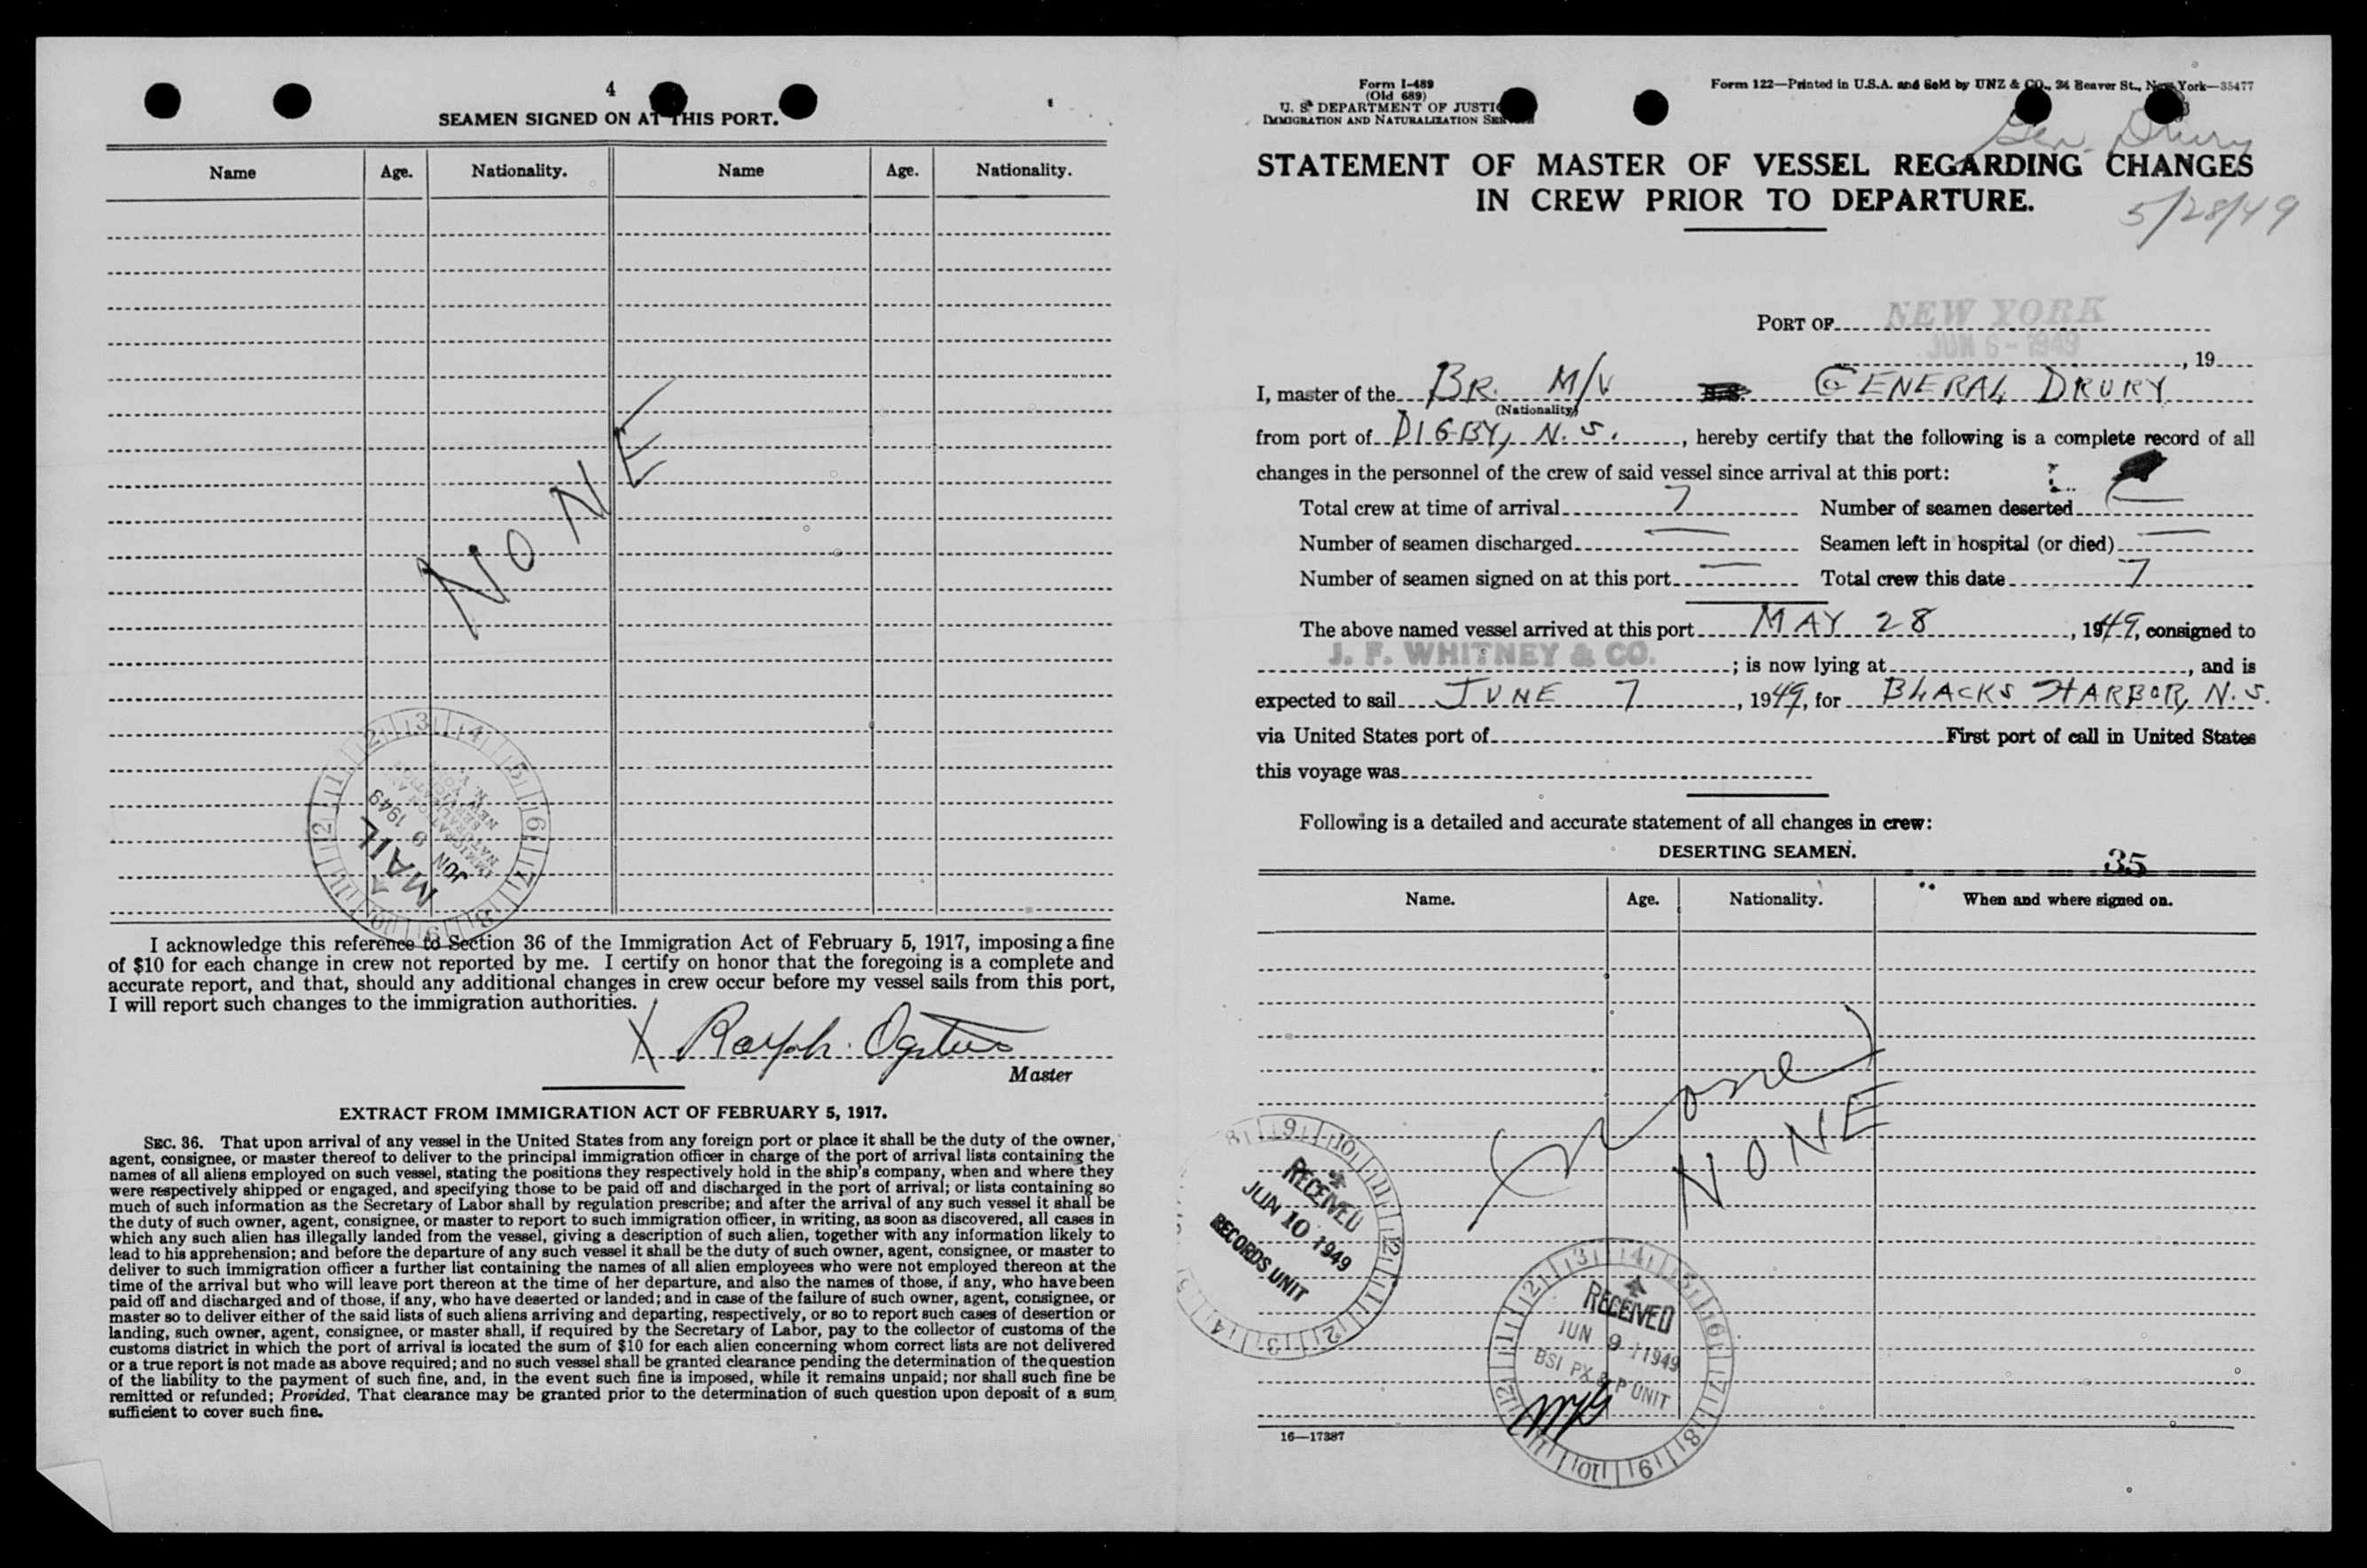 4
SEAMEN SIGNED ON AT THIS PORT.
Name Age. Nationality. Name Age. Nationality.
NONE
1 2 3 4 5 6 7 8 9 10 11 12
IMMIGRATION AND
NATURALIZATION
SERVICE
NEW YORK
N. Y.
JUN 9 1949
MAIL
I acknowledge this reference to Section 36 of the Immigration Act of February 5, 1917, imposing a fine
of $10 for each change in crew not reported by me. I certify on honor that the foregoing is a complete and
accurate report, and that, should any additional changes in crew occur before my vessel sails from this port,
I will report such changes to the immigration authorities.
X Ralph
Master
EXTRACT FROM IMMIGRATION ACT OF FEBRUARY 5, 1917.
SEC. 36. That upon arrival of any vessel in the United States from any foreign port or place it shall be the duty of the owner,
agent, consignee, or master thereof to deliver to the principal immigration officer in charge of the port of arrival lists containing the
names of all aliens employed on such vessel, stating the positions they respectively hold in the ship's company, when and where they
were respectively shipped or engaged, and specifying those to be paid off and discharged in the port of arrival; or lists containing so
much of such information as the Secretary of Labor shall by regulation prescribe; and after the arrival of any such vessel it shall be
the duty of such owner, agent, consignee, or master to report to such immigration officer, in writing, as soon as discovered, all cases in
which any such alien has illegally landed from the vessel, giving a description of such alien, together with any information likely to
lead to his apprehension; and before the departure of any such vessel it shall be the duty of such owner, agent, consignee, or master to
deliver to such immigration officer a further list containing the names of all alien employees who were not employed thereon at the
time of the arrival but who will leave port thereon at the time of her departure, and also the names of those, if any, who have been
paid off and discharged and of those, if any, who have deserted or landed; and in case of the failure of such owner, agent, consignee, or
master so to deliver either of the said lists of such aliens arriving and departing, respectively, or so to report such cases of desertion or
landing, such owner, agent, consignee, or master shall, if required by the Secretary of Labor, pay to the collector of customs of the
customs district in which the port of arrival is located the sum of $10 for each alien concerning whom correct lists are not delivered
or a true report is not made as above required; and no such vessel shall be granted clearance pending the determination of the question
of the liability to the payment of such fine, and, in the event such fine is imposed, while it remains unpaid; nor shall such fine be
remitted or refunded; Provided, That clearance may be granted prior to the determination of such question upon deposit of a sum
sufficient to cover such fine.
Form I-489
(Old 689)
U. S. DEPARTMENT OF JUSTICE
IMMIGRATION AND NATURALIZATION SERVICE
Form 122—Printed in U.S.A. and Sold by UNZ & CO., 24 Beaver St., New York—35477
Gen. Drury
STATEMENT OF MASTER OF VESSEL REGARDING CHANGES
IN CREW PRIOR TO DEPARTURE.
5/28/49
PORT OF NEW YORK
JUN 6 - 1949, 19
I, master of the BR. M/V GENERAL DRURY
(Nationality)
from port of DIGBY, N. S., hereby certify that the following is a complete record of all
changes in the personnel of the crew of said vessel since arrival at this port:
Total crew at time of arrival 7 Number of seamen deserted —
Number of seamen discharged — Seamen left in hospital (or died) —
Number of seamen signed on at this port — Total crew this date 7
The above named vessel arrived at this port MAY 28, 1949, consigned to
J. F. WHITNEY & CO.; is now lying at, and is
expected to sail JUNE 7, 1949, for BLACKS HARBOR, N. S.
via United States port of First port of call in United States
this voyage was
Following is a detailed and accurate statement of all changes in crew:
DESERTING SEAMEN.
35
Name. Age. Nationality. When and where signed on.
(none)
NONE
RECEIVED
JUN 10 1949
RECORDS UNIT
RECEIVED
JUN 9 1949
BSI PX & P UNIT
16—17387